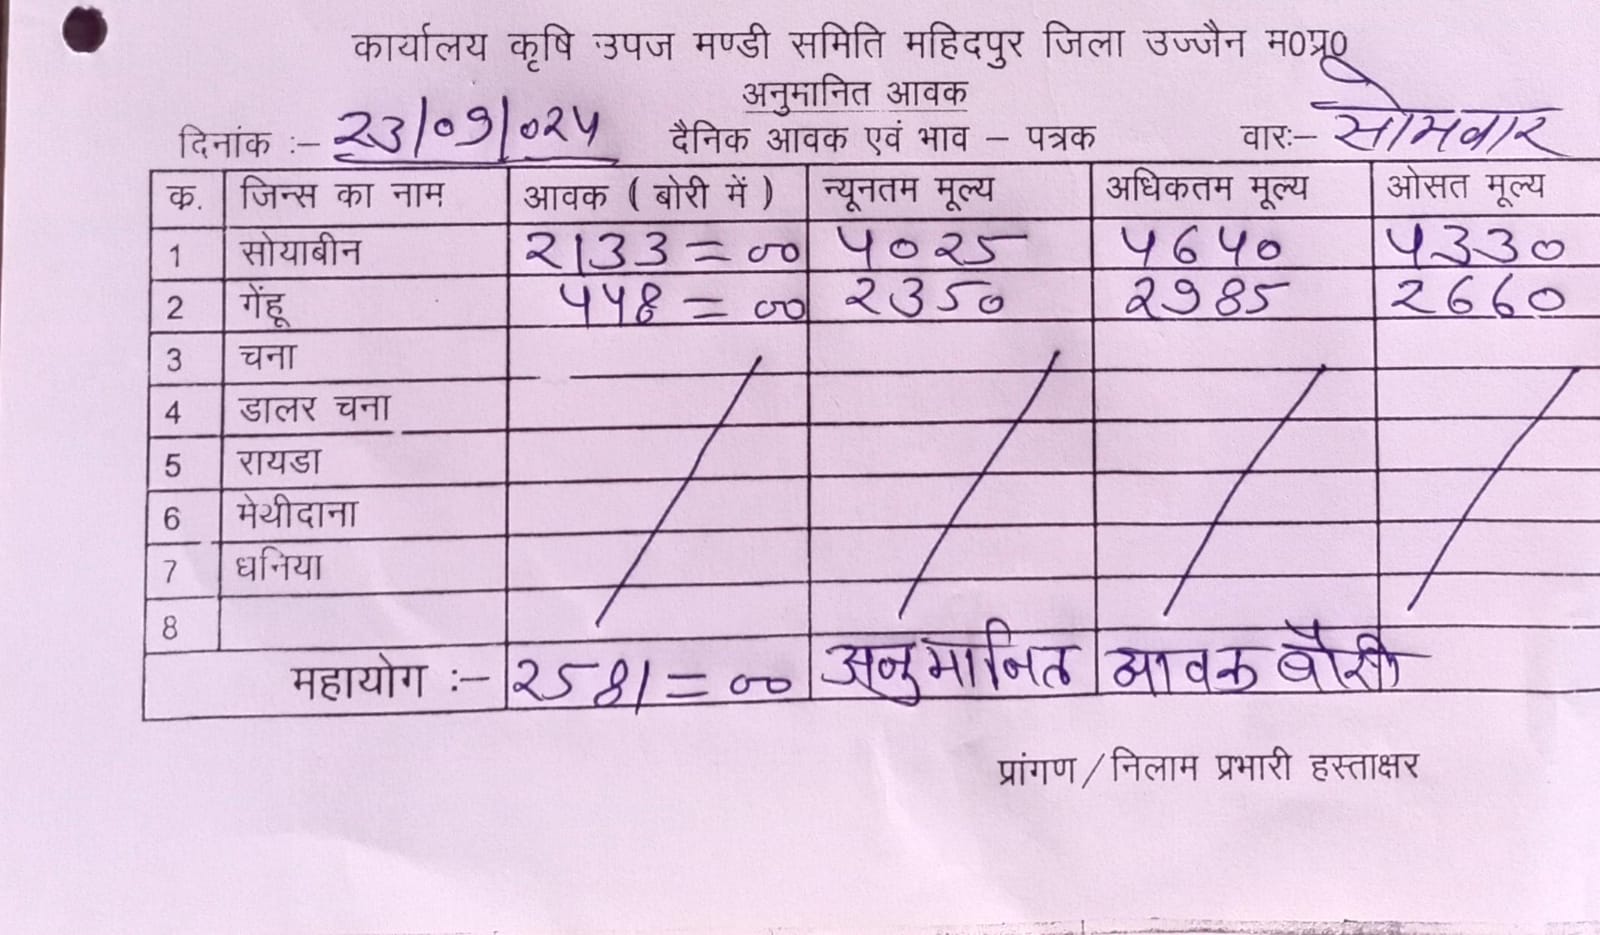 कार्यालय कृषि उपज मण्डी समिति महिदपुर जिला उज्जैन म0प्र0
अनुमानित आवक
दिनांक :– 23/09/024 दैनिक आवक एवं भाव – पत्रक वारः– सोमवार
क. जिन्स का नाम आवक ( बोरी में ) न्यूनतम मूल्य अधिकतम मूल्य ओसत मूल्य
1 सोयाबीन 2133=00 4025 4640 4330
2 गेंहू 448=00 2350 2985 2660
3 चना
4 डालर चना
5 रायडा
6 मेथीदाना
7 धनिया
8
महायोग :– 2581=00 अनुमानित आवक बौरी
प्रांगण/निलाम प्रभारी हस्ताक्षर